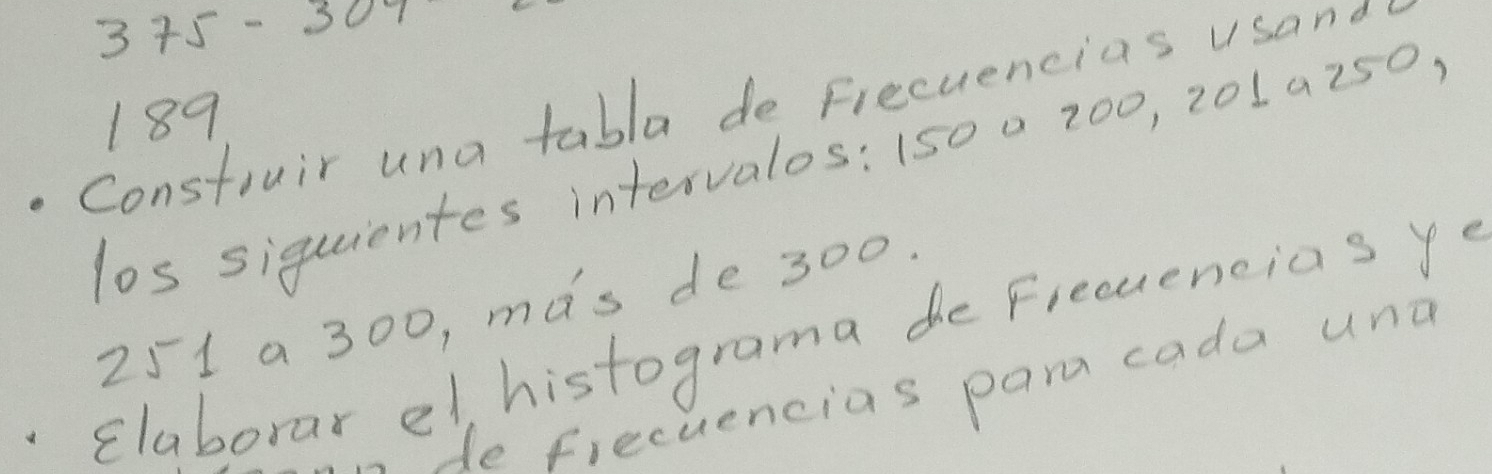 375 - 304
189
• Construir una tabla de Frecuencias usando
los siguientes intervalos: 150 a 200, 201 a 250,
251 a 300, más de 300.
• Elaborar el histograma de Frecuencias y e
de Frecuencias para cada una